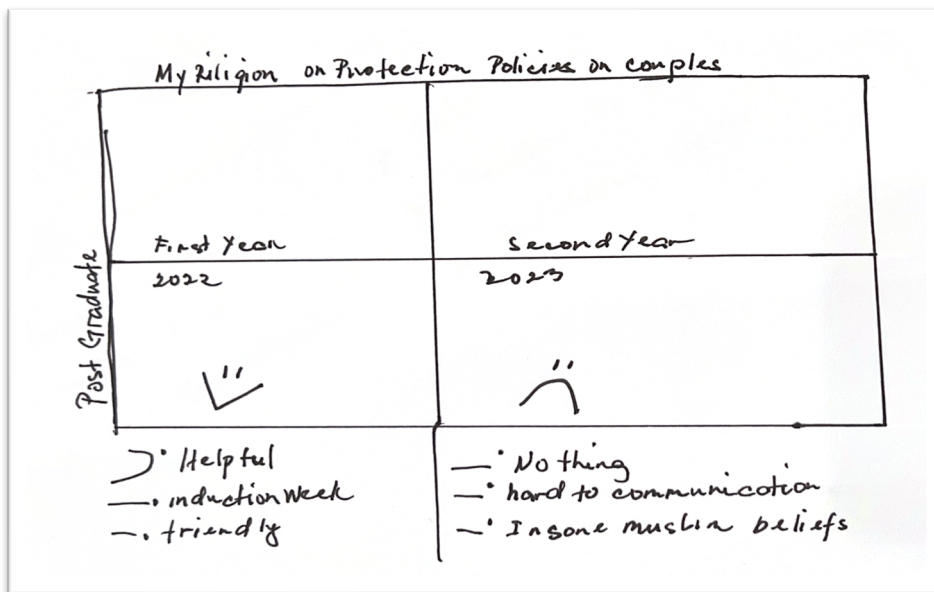 My Religion on Protection Policies on couples
First Year
Second Year
2022
2023
Post Graduate
Helpful
induction Week
friendly
Nothing
hard to communication
Insone muslim beliefs